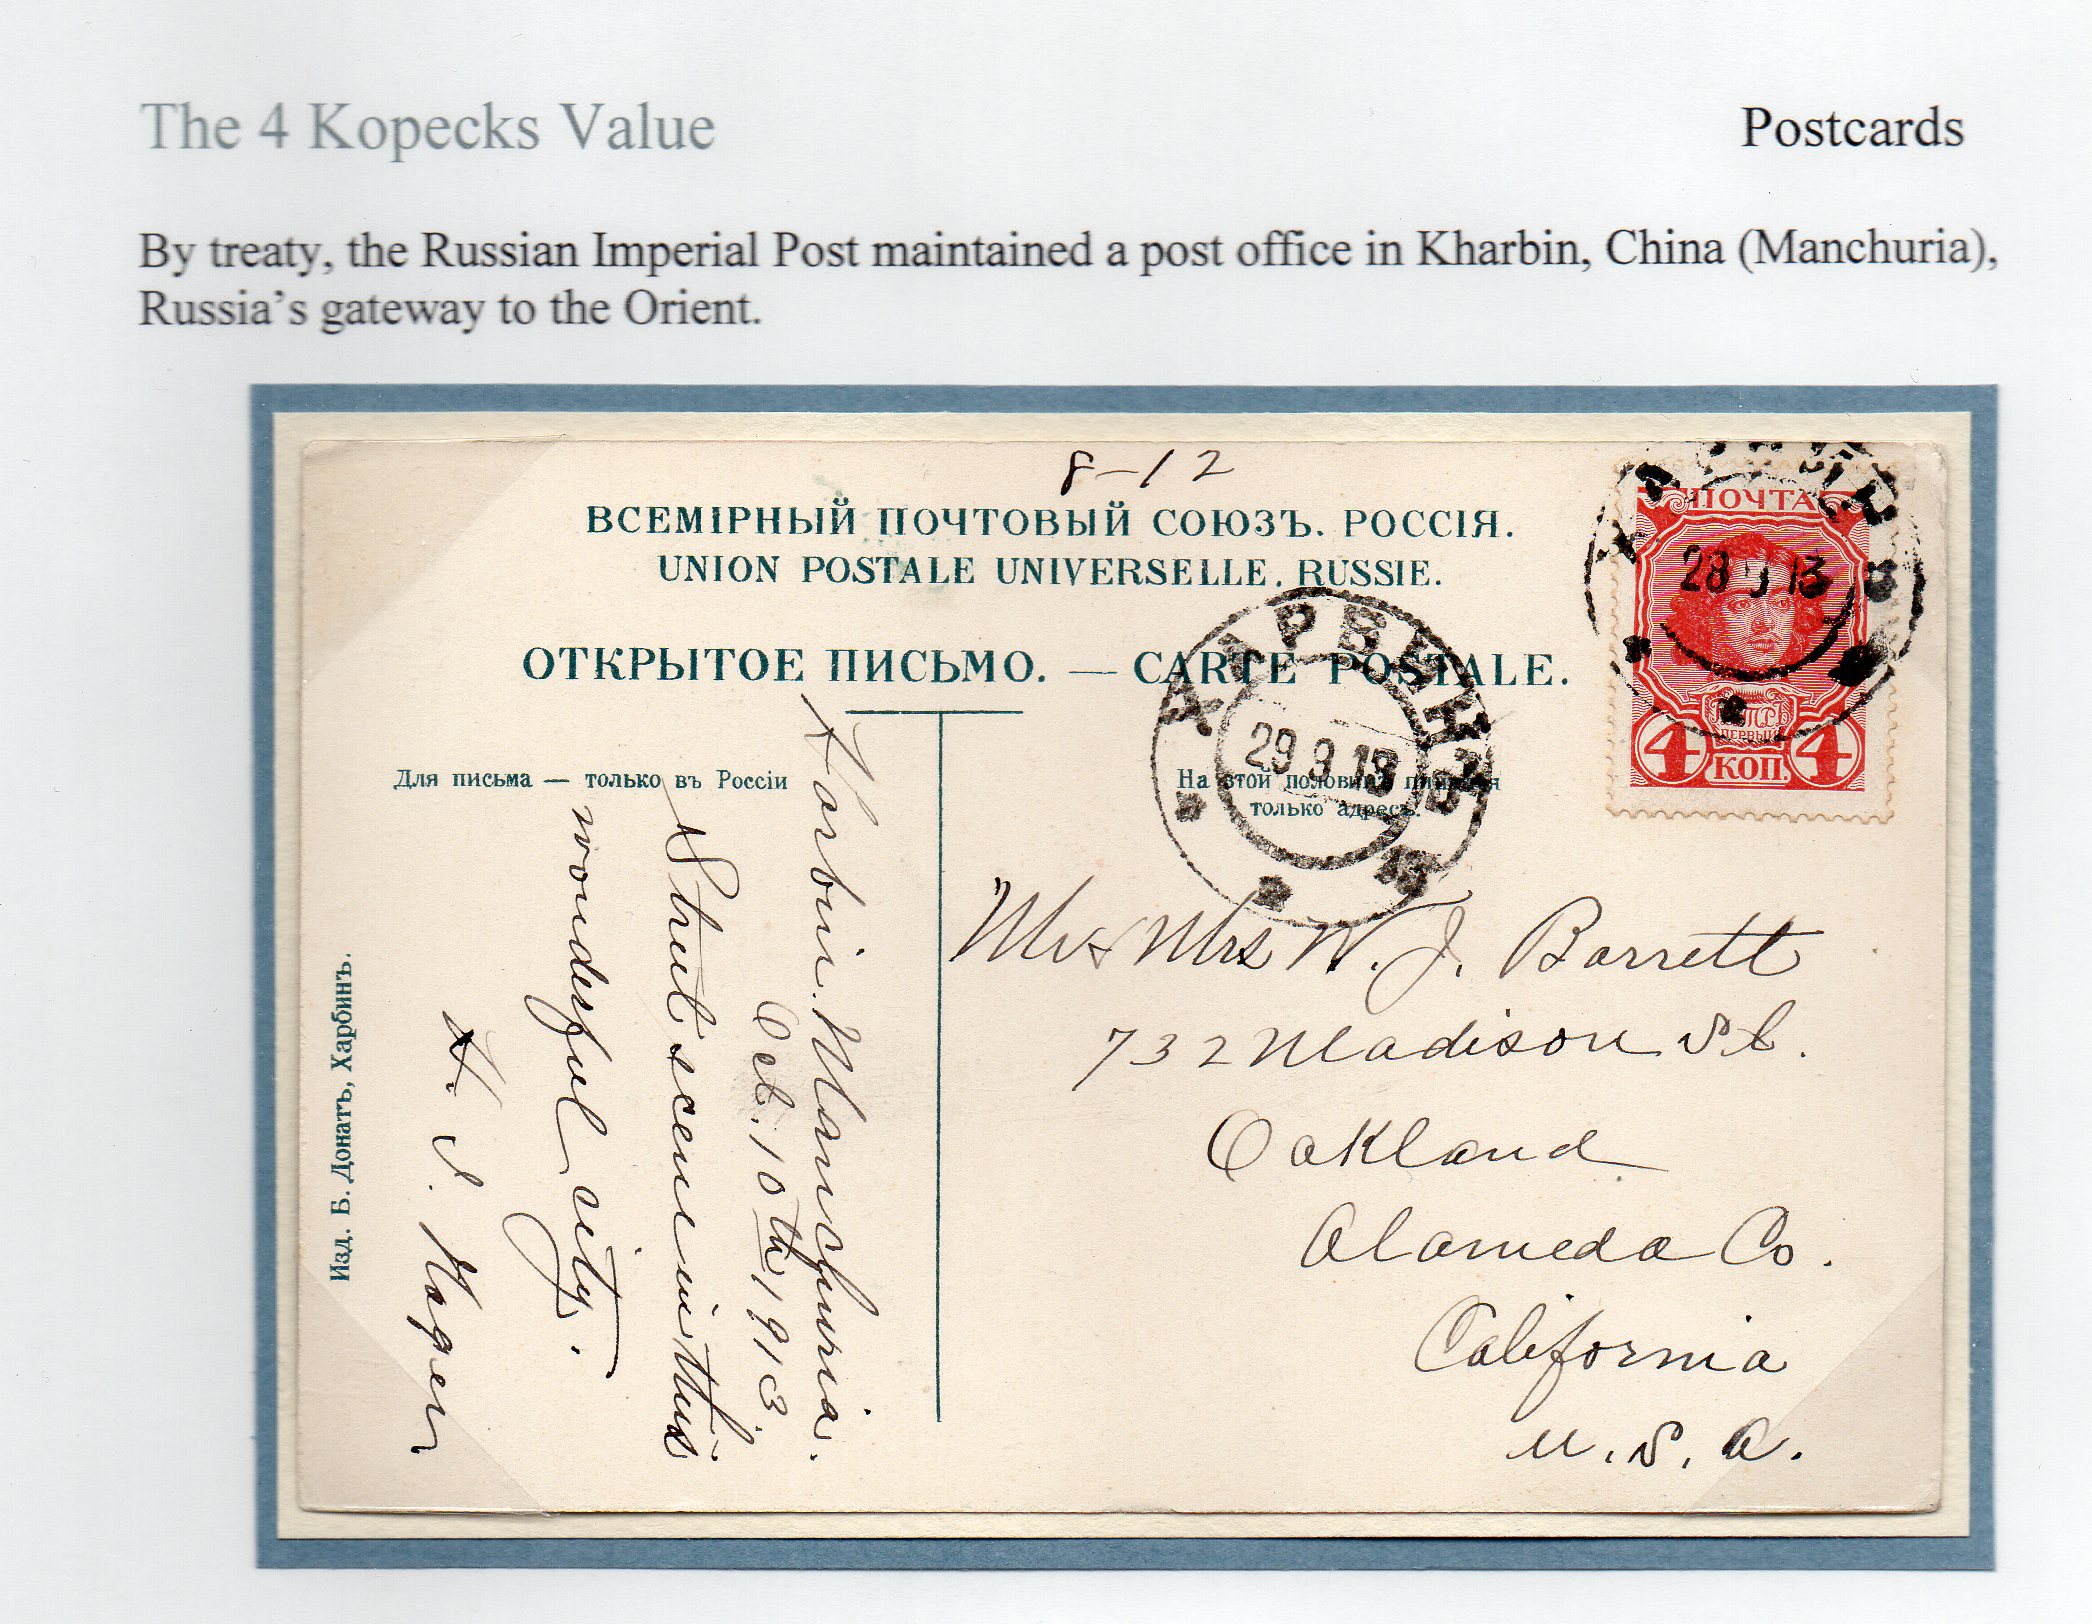 The 4 Kopecks Value
Postcards
By treaty, the Russian Imperial Post maintained a post office in Kharbin, China (Manchuria),
Russia’s gateway to the Orient.
8-12
ВСЕМІРНЫЙ ПОЧТОВЫЙ СОЮЗЪ. РОССІЯ.
UNION POSTALE UNIVERSELLE. RUSSIE.
ОТКРЫТОЕ ПИСЬМО. — CARTE POSTALE.
ПОЧТА
28 9 13
ПЕТРЪ
ПЕРВЫЙ
4 КОП. 4
ХАРБИНЪ
29.9.13
Для письма — только въ Россіи
На этой половинѣ пишется
только адресъ.
Harbin. Manchuria.
Oct. 10th 1913.
Street scene in this
wonderful city.
H. S.
Mr & Mrs W. J. Barrett
732 Madison St.
Oakland
Alameda Co.
California
U. S. A.
Изд. Б. Донатъ, Харбинъ.